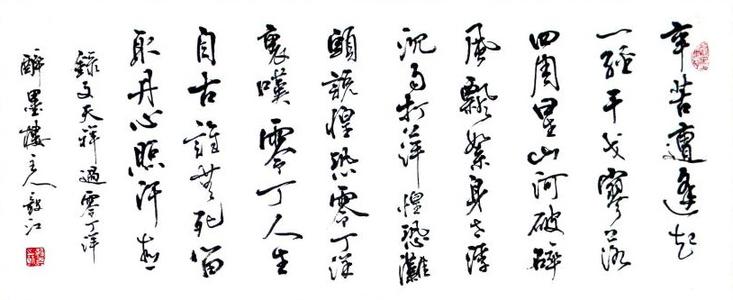 辛苦遭逢起
一經干戈寥落
四周星山河破碎
風飄絮身世浮
沉雨打萍惶恐灘
頭說惶恐零丁洋
裏嘆零丁人生
自古誰無死留
取丹心照汗青
錄文天祥過零丁洋
醉墨樓主人毅江